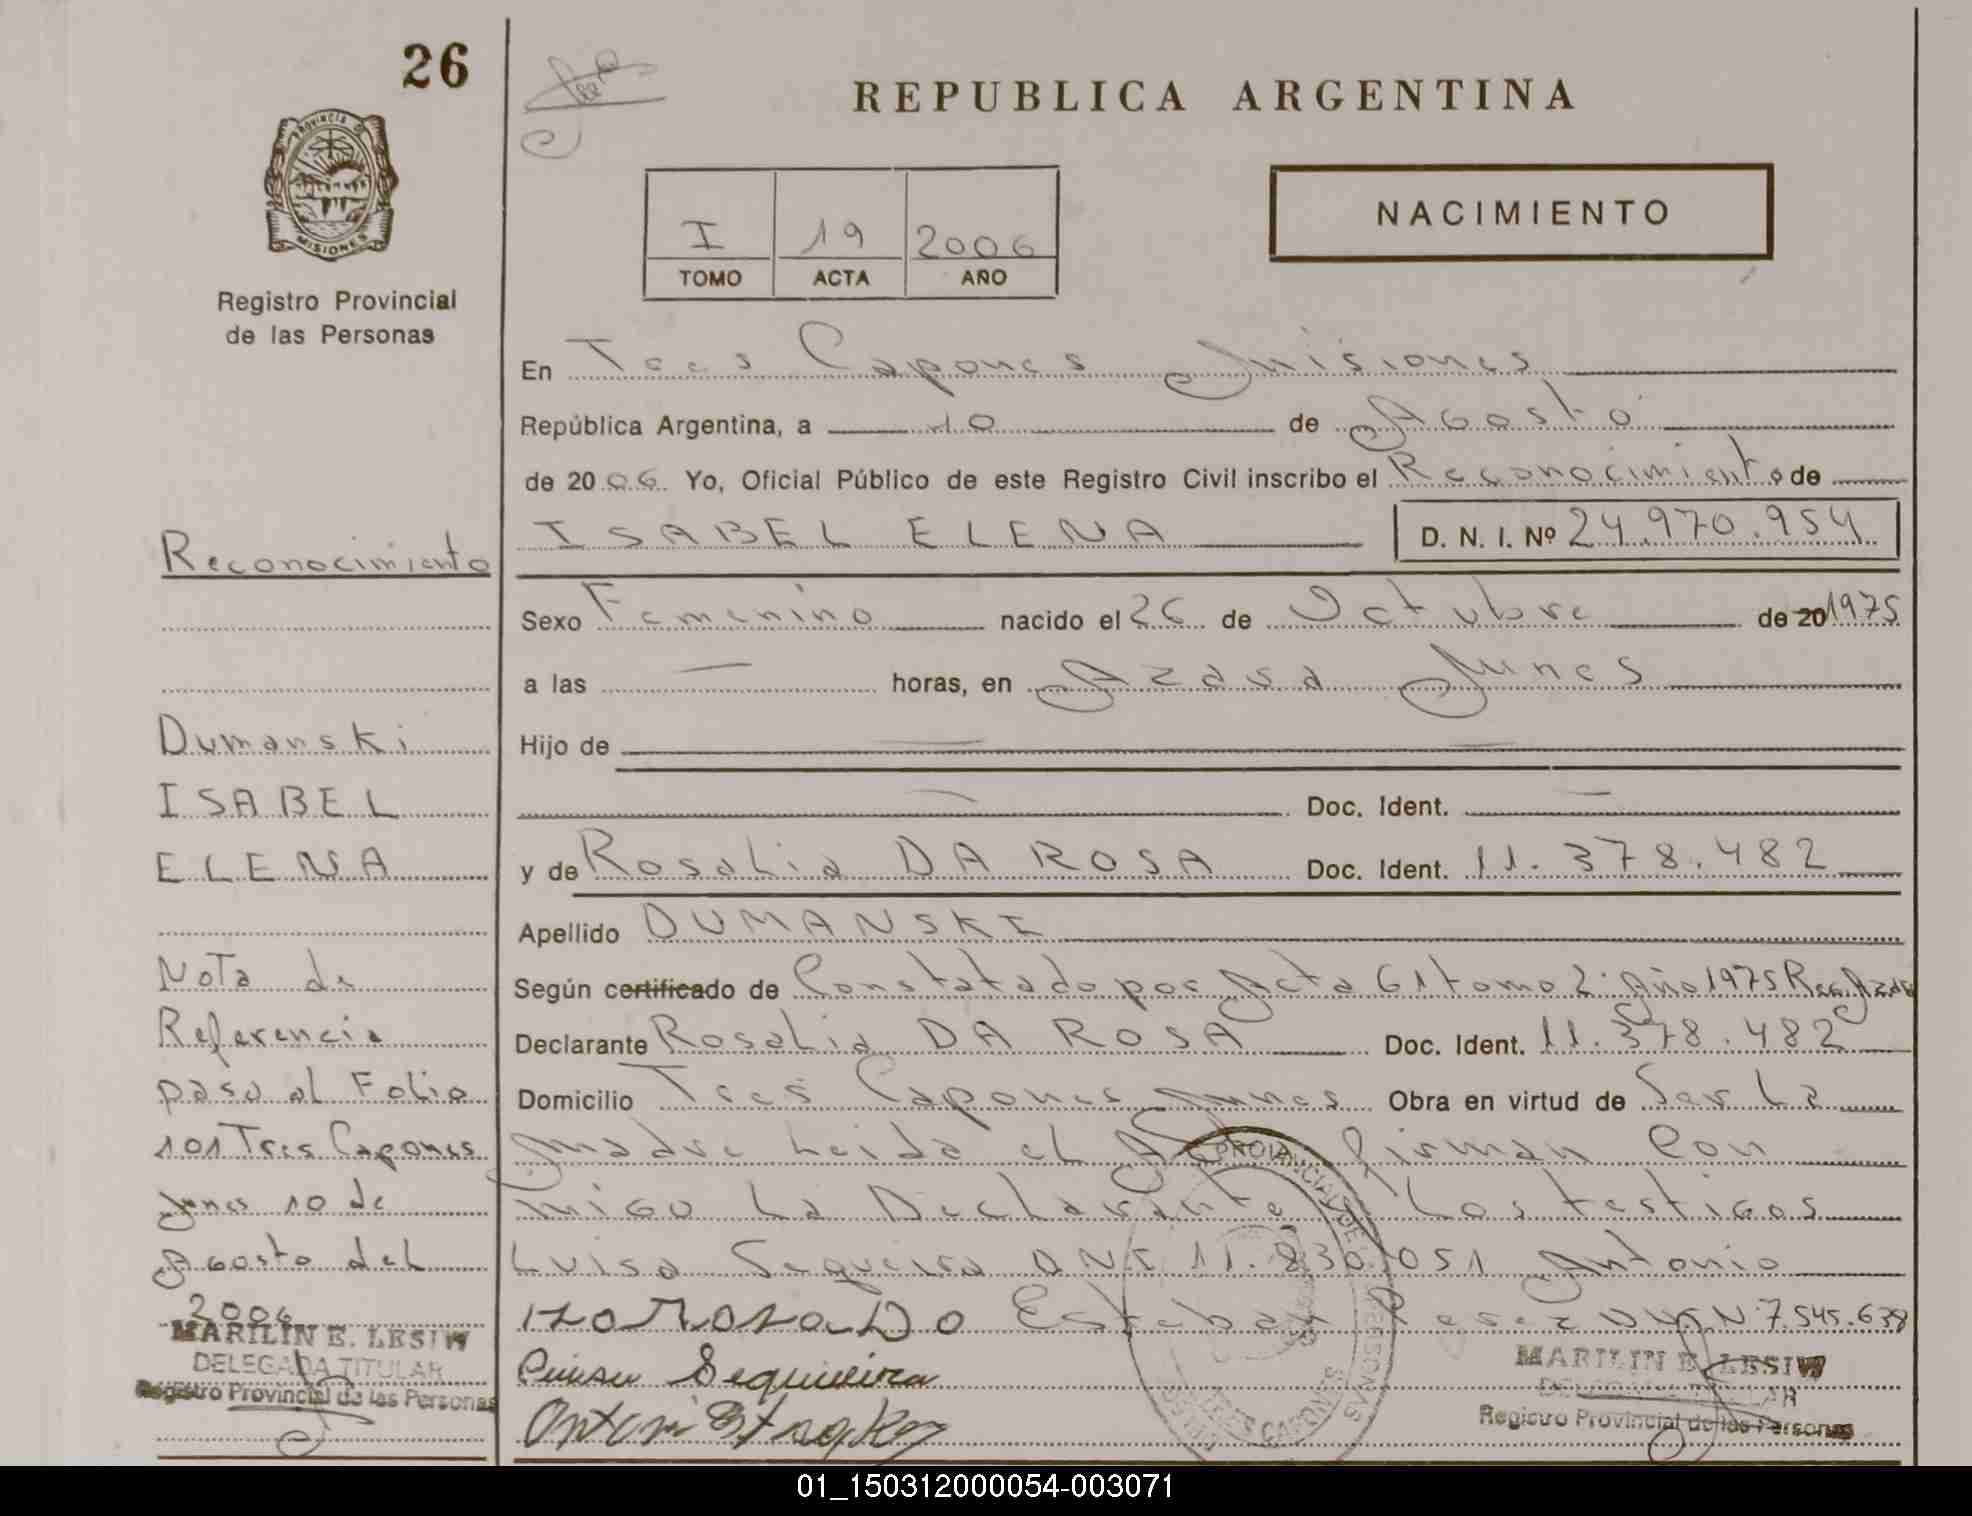 26
PROVINCIA DE
MISIONES
Registro Provincial
de las Personas
REPUBLICA ARGENTINA
I 19 2006
TOMO ACTA AÑO
NACIMIENTO
En Tres Capones Misiones
República Argentina, a 10 de Agosto
de 2006 Yo, Oficial Público de este Registro Civil inscribo el Reconocimiento de
ISABEL ELENA D. N. I. Nº 24.970.954
Sexo Femenino nacido el 26 de Octubre de 20 1975
a las — horas, en Azara Mnes
Hijo de — —
— Doc. Ident. —
y de Rosalia DA ROSA Doc. Ident. 11.378.482
Apellido DUMANSKI
Según certificado de Constatado por Acta 61 tomo 2 Año 1975 Reg. Azara
Declarante Rosalia DA ROSA Doc. Ident. 11.378.482
Domicilio Tres Capones Mnes Obra en virtud de Ser La
Madre Leida el firman Con
migo La Declarante Los testigos
Luisa Sequeira DNI 11.830.051 Antonio
Esteban DNI N° 7.545.638
Luisa Sequeira
Reconocimiento
Dumanski
ISABEL
ELENA
Nota de
Referencia
pasa al Folio
101 Tres Capones
Mnes 10 de
Agosto del
2006
MARILIN E. LESIW
DELEGADA TITULAR
Registro Provincial de las Personas
PROVINCIAL DE LAS PERSONAS
TRES CAPONES
MARILIN E. LESIW
DELEGADA TITULAR
Registro Provincial de las Personas
01_150312000054-003071